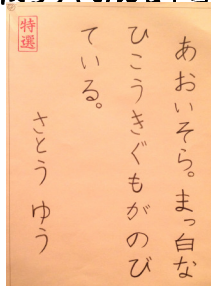 あおいそら。まっ白な
ひこうきぐもがのび
ている。
さとう ゆう
特選